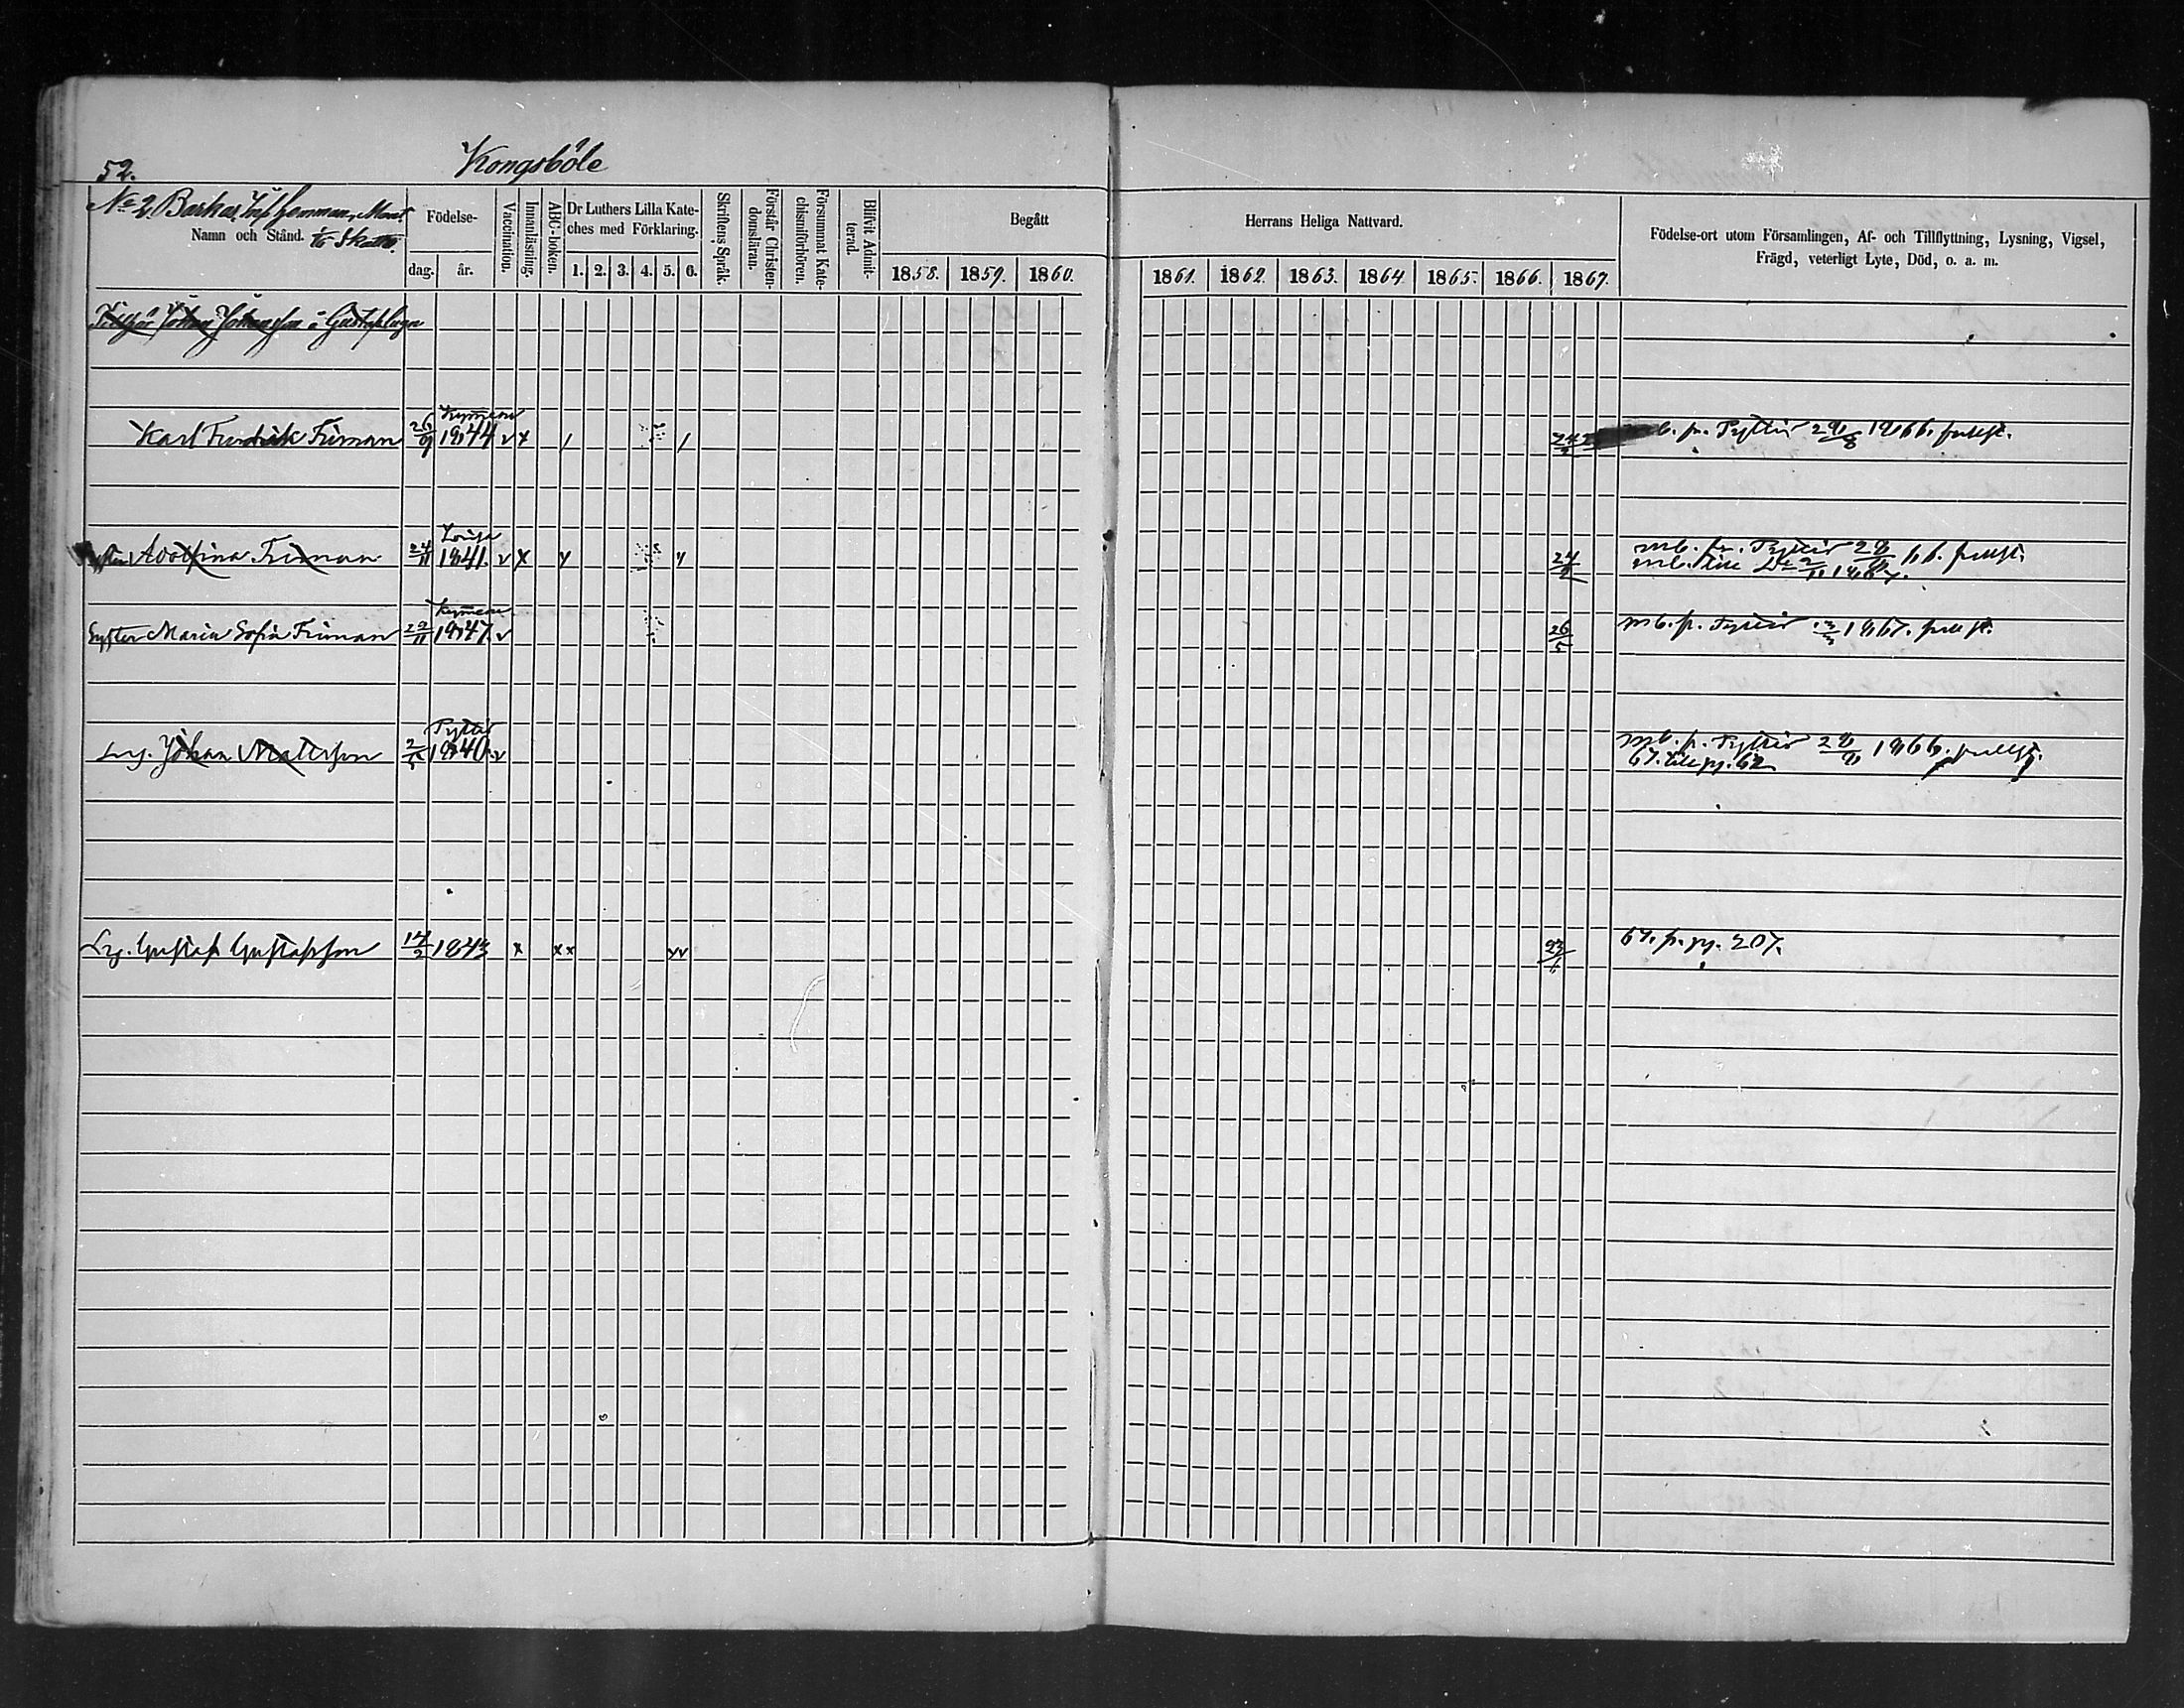 52. Kongsböle
No 2 Barkas
Namn och Stånd.
Födelse-
dag. år.
Vaccination.
Innanläsning.
ABC-boken.
Dr Luthers Lilla Kate-
ches med Förklaring.
1. 2. 3. 4. 5. 6.
Skriftens Språk.
Förstår Christen-
domsläran.
Försummat Kate-
chismiförhören.
Blifvit Admit-
terad.
Begått
1858. 1859. 1860.
Herrans Heliga Nattvard.
1861. 1862. 1863. 1864. 1865. 1866. 1867.
Födelse-ort utom Församlingen, Af- och Tillflyttning, Lysning, Vigsel,
Frägd, veterligt Lyte, Död, o. a. m.
Johan Johansson
Kymmene
Karl Fredrik Friman 26/9 1844 v x 1866.
Lovisa
Adolfina Friman 24/11 1841. v x 24 mb. fr. Pyttis 66.
1867.
Kymmene
Syster Maria Sofia Friman 1847. v 26/5 mb. fr. Pyttis 1867.
Pyttis
Johan Mattsson 1840. v mb. fr. Pyttis 1866.
67. till pg. 62
Gustaf Gustafsson 14/2 1843 x x x v v 67. fr. pg. 207.